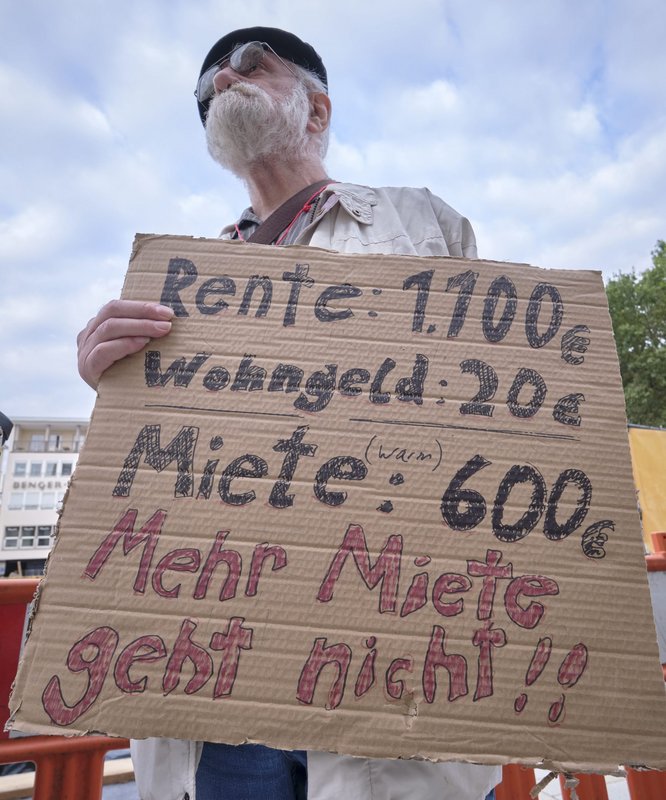 Rente: 1.100€
Wohngeld: 20€
Miete (warm): 600€
Mehr Miete
geht nicht!!